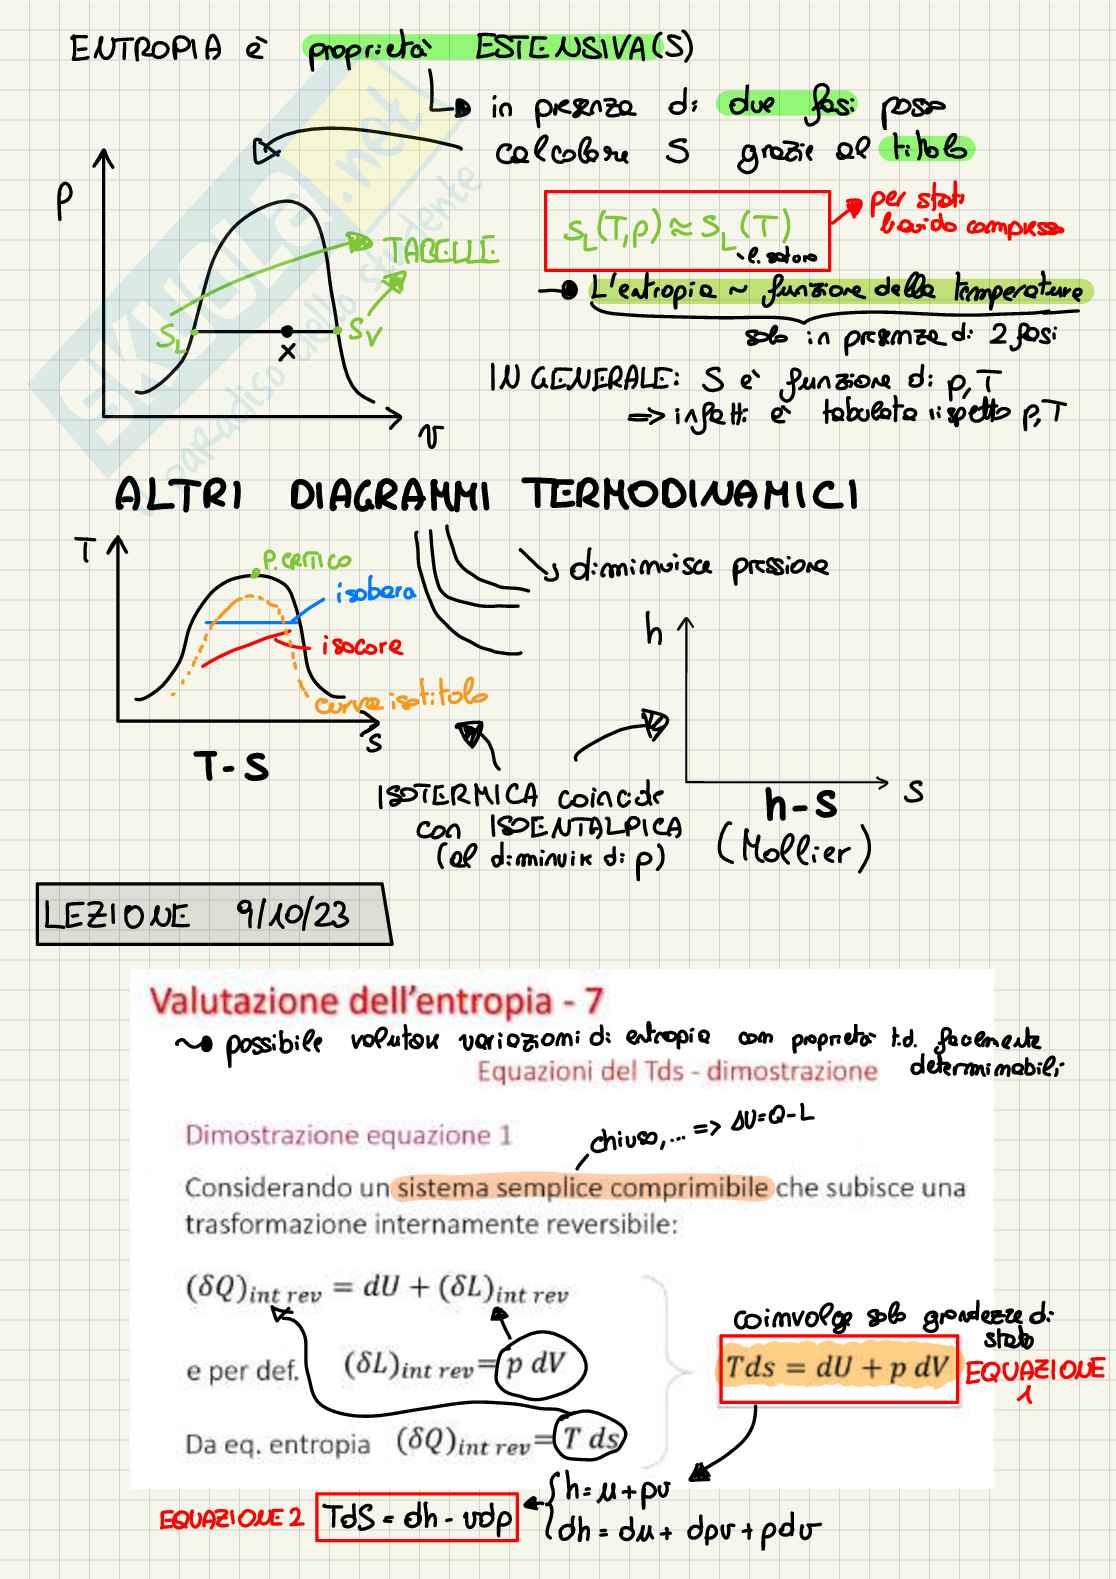 ENTROPIA è proprietà ESTENSIVA (S)
in presenza di due fasi posso
calcolare S grazie al titolo
P
TABELLE
SL
SV
x
v
SL(T,p) ≈ SL(T)
l. saturo
per stati
liquido compresso
L'entropia ~ funzione della temperatura
solo in presenza di 2 fasi
IN GENERALE: S è funzione di p,T
=> infatti è tabulata rispetto p,T
SKUOLA.net
paradiso dello studente
ALTRI DIAGRAMMI TERMODINAMICI
T
P. CRITICO
isobara
isocora
curva isotitolo
S
T-S
diminuisce pressione
h
S
h-S
(Mollier)
ISOTERMICA coincide
con ISOENTALPICA
(al diminuire di p)
LEZIONE 9/10/23
Valutazione dell'entropia - 7
possibile valutare variazioni di entropia con proprietà t.d. facilmente
determinabili
Equazioni del Tds - dimostrazione
Dimostrazione equazione 1
chiuso, ... => ΔU=Q-L
Considerando un sistema semplice comprimibile che subisce una
trasformazione internamente reversibile:
(δQ)int rev = dU + (δL)int rev
e per def. (δL)int rev= p dV
Da eq. entropia (δQ)int rev= T ds
coinvolge solo grandezze di
stato
Tds = dU + p dV
EQUAZIONE
1
EQUAZIONE 2 TdS = dh - vdp
h = u + pv
dh = du + dpv + pdv